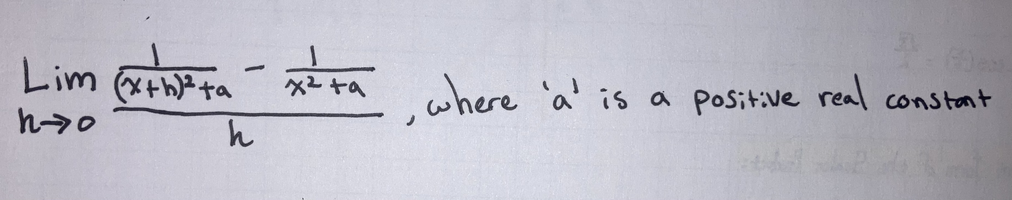 Lim h→0 (1/((x+h)²+a) - 1/(x²+a))/h, where 'a' is a positive real constant